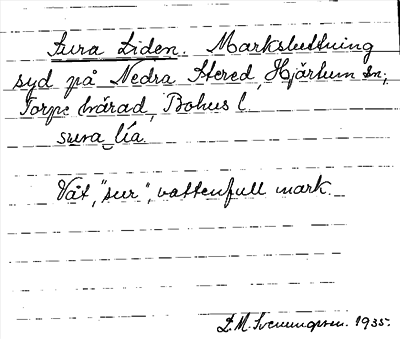 Sura Liden. Marksluttning
syd på Nedra Stered, Hjärtum sn;
Torpe härad, Bohus l
sura lía.
Våt, "sur", vattenfull mark.
D.M. Svenungsson. 1935.